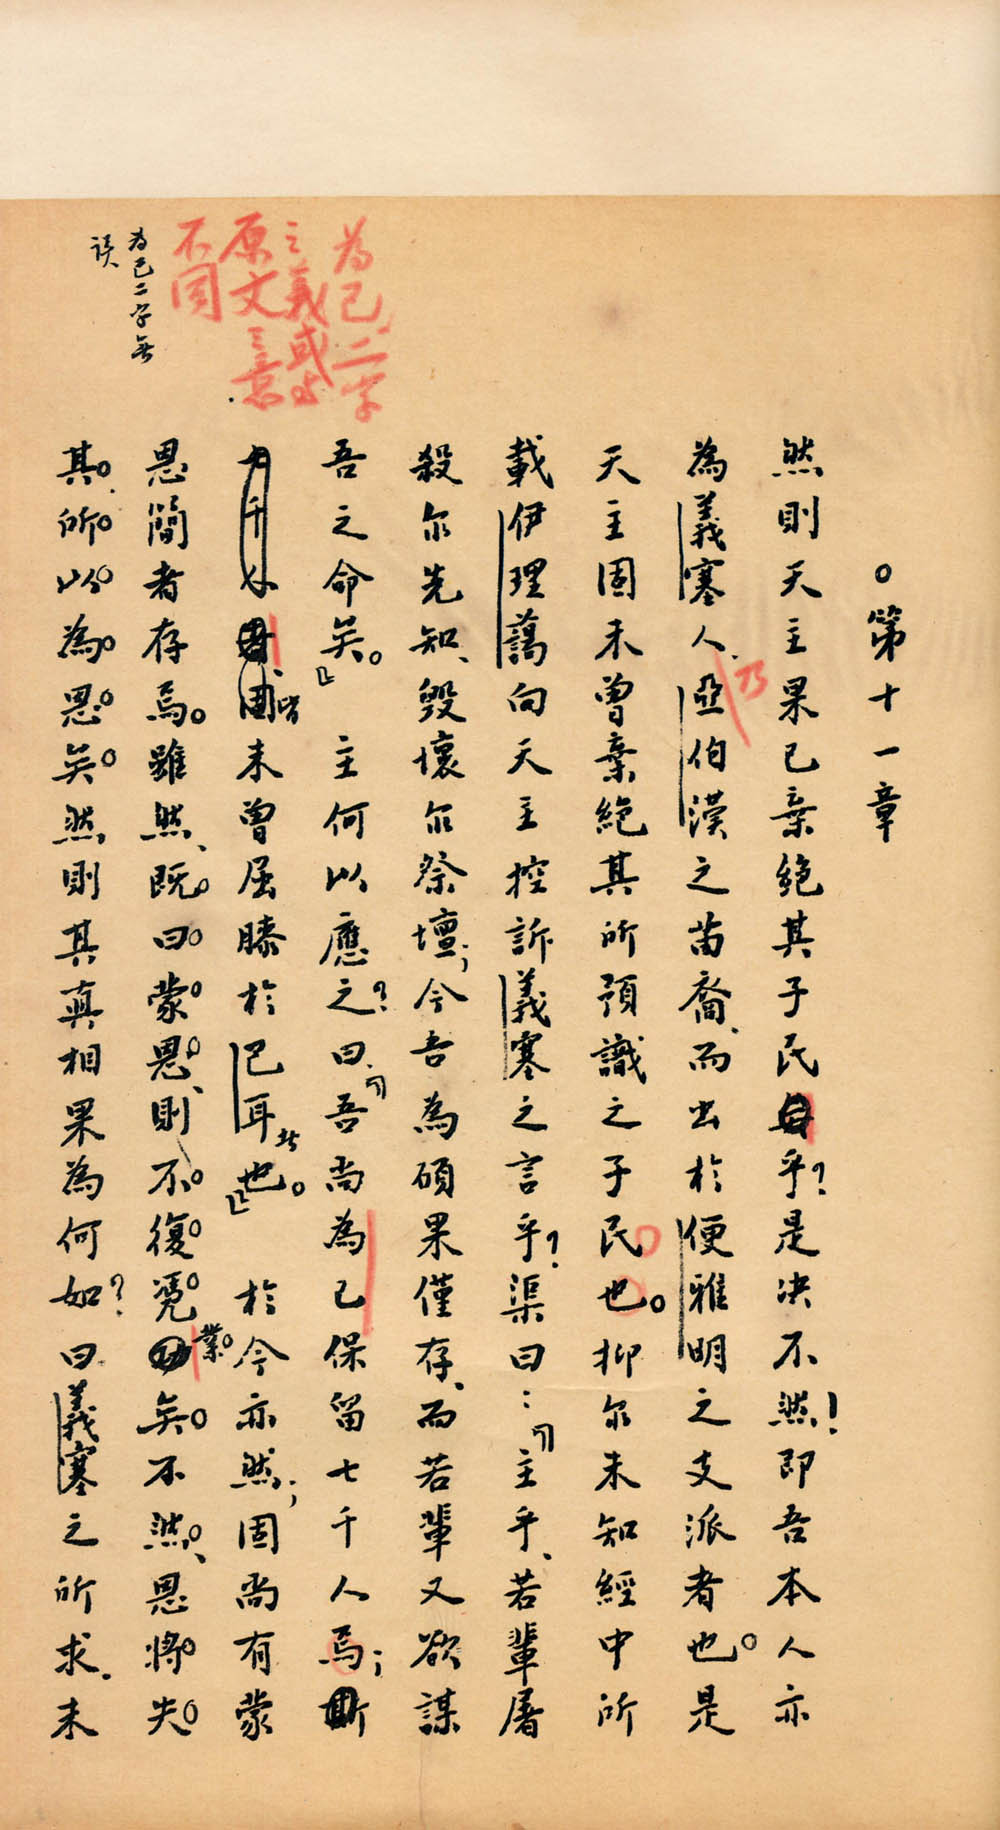 第十一章
然則天主果已棄絕其子民乎？是決不然！即吾本人亦
為義塞人、乃亞伯漢之苗裔、而出於便雅明之支派者也。是
天主固未曾棄絕其所預識之子民也。抑尔未知經中所
載伊理藹向天主控訴義塞之言乎？渠曰：「主乎、若輩屠
殺尔先知、毀壞尔祭壇；今吾為碩果僅存、而若輩又欲謀
吾之命矣。」主何以應之？曰、「吾尚為已保留七千人焉；斯
皆未曾屈膝於巴耳者也。」於今亦然；固尚有蒙
恩簡者存焉。雖然、既曰蒙恩、則不復凴業矣。不然、恩將失
其所以為恩矣。然則其真相果為何如？曰、義塞之所求、未
為己二字
之義或與
原文之意
不同
為己二字無
誤